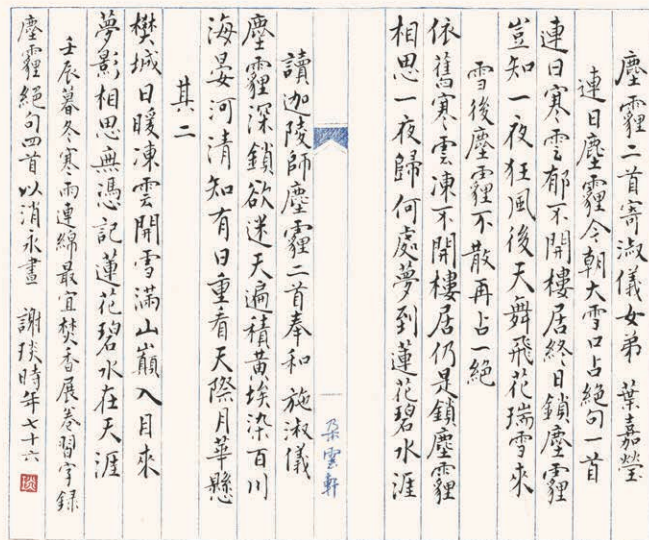 塵霾二首寄淑儀女弟 葉嘉瑩
連日塵霾今朝大雪口占絕句一首
連日寒雲郁不開樓居終日鎖塵霾
豈知一夜狂風後天舞飛花瑞雪來
雪後塵霾不散再占一絕
依舊寒雲凍不開樓居仍是鎖塵霾
相思一夜歸何處夢到蓮花碧水涯
朵雲軒
讀迦陵師塵霾二首奉和 施淑儀
塵霾深鎖欲迷天遍積黃埃染百川
海晏河清知有日重看天際月華懸
其二
樊城日暖凍雲開雪滿山巔入目來
夢影相思無憑記蓮花碧水在天涯
壬辰暮冬寒雨連綿最宜焚香展卷習字録
塵霾絕句四首以消永晝 謝琰時年七十六
琰